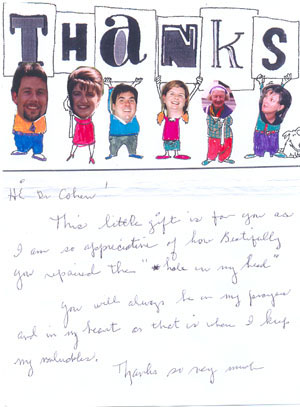 THANKS
Hi Dr Cohen!
This little gift is for you as
I am so appreciative of how Beatifully
you repaired the "hole in my head"
You will always be in my prayers
and in my heart as that is where I keep
my valuables.
Thanks so very much